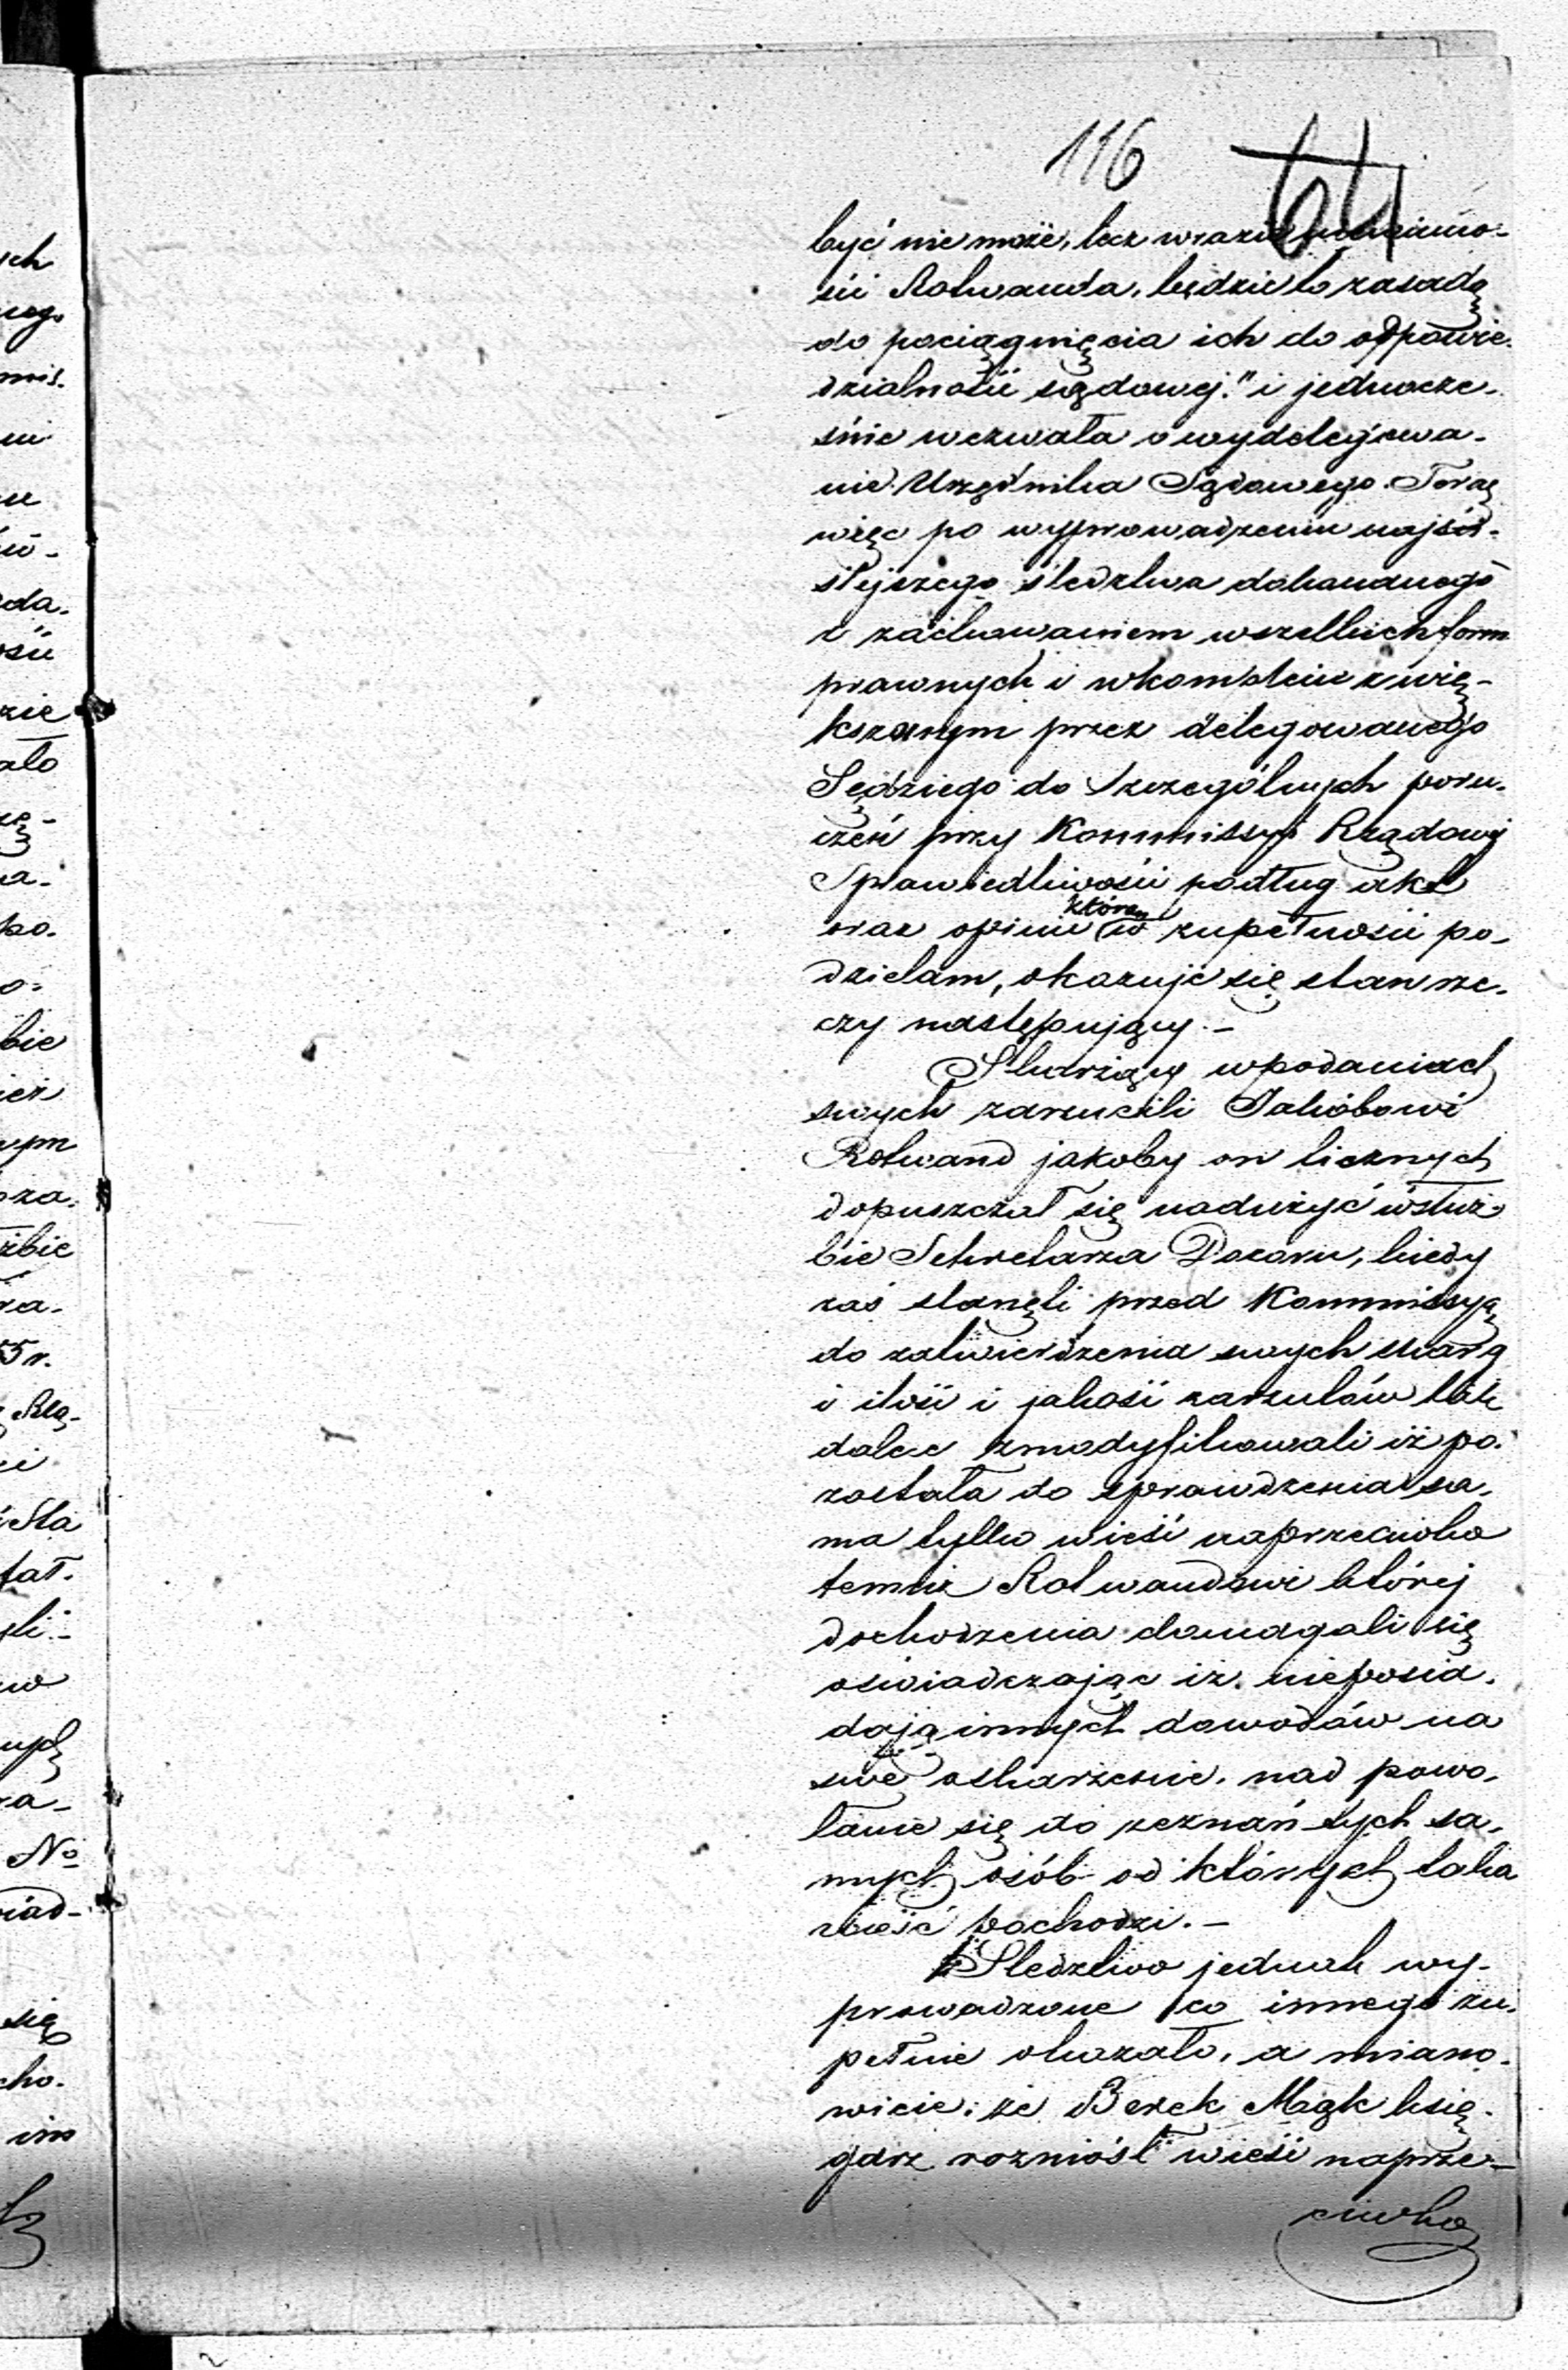 116 64
być nie może, lecz w razie niewinno-
ści Rotwanda, będzie to zasadą
do pociągnięcia ich do odpowie-
dzialności sądowej." i jednocze-
śnie wezwała o wydelegowa-
nie Urzędnika Sądowego. Teraz
więc po wyprowadzeniu najści-
ślejszego śledztwa dokonanego
z zachowaniem wszelkich form
prawnych i w komplecie zwię-
kszonym przez delegowanego
Sędziego do szczególnych poru-
czeń przy Kommissyi Rządowej
Sprawiedliwości podług akt
oraz opinii którą w zupełności po-
dzielam, okazuje się stan rze-
czy następujący. –
Skarżący w podaniach
swych zarzucili Jakóbowi
Rotwand jakoby on licznych
dopuszczał się nadużyć w służ-
bie Sekretarza Dozoru, kiedy
zaś stanęli przed Kommissyą
do zatwierdzenia swych skarg
i ilość i jakość zarzutów tak
dalece zmodyfikowali iż po-
została do sprawdzenia sa-
ma tylko wieść naprzeciwko
temuż Rotwandowi której
dochodzenia domagali się
oświadczając iż nieposia-
dają innych dowodów na
swe oskarżenie, nad powo-
łanie się do zeznań tych sa-
mych osób od których taka
wieść pochodzi. –
Śledztwo jednak wy-
prowadzone co innego zu-
pełnie okazało, a miano-
wicie: że Berek Mązk księ-
garz rozniósł wieść naprze-
ciwko
ych
nego
da.
ści
zie
ało
bie
zbie
55 r.
Rzą-
Sta
No
się
cho.
im